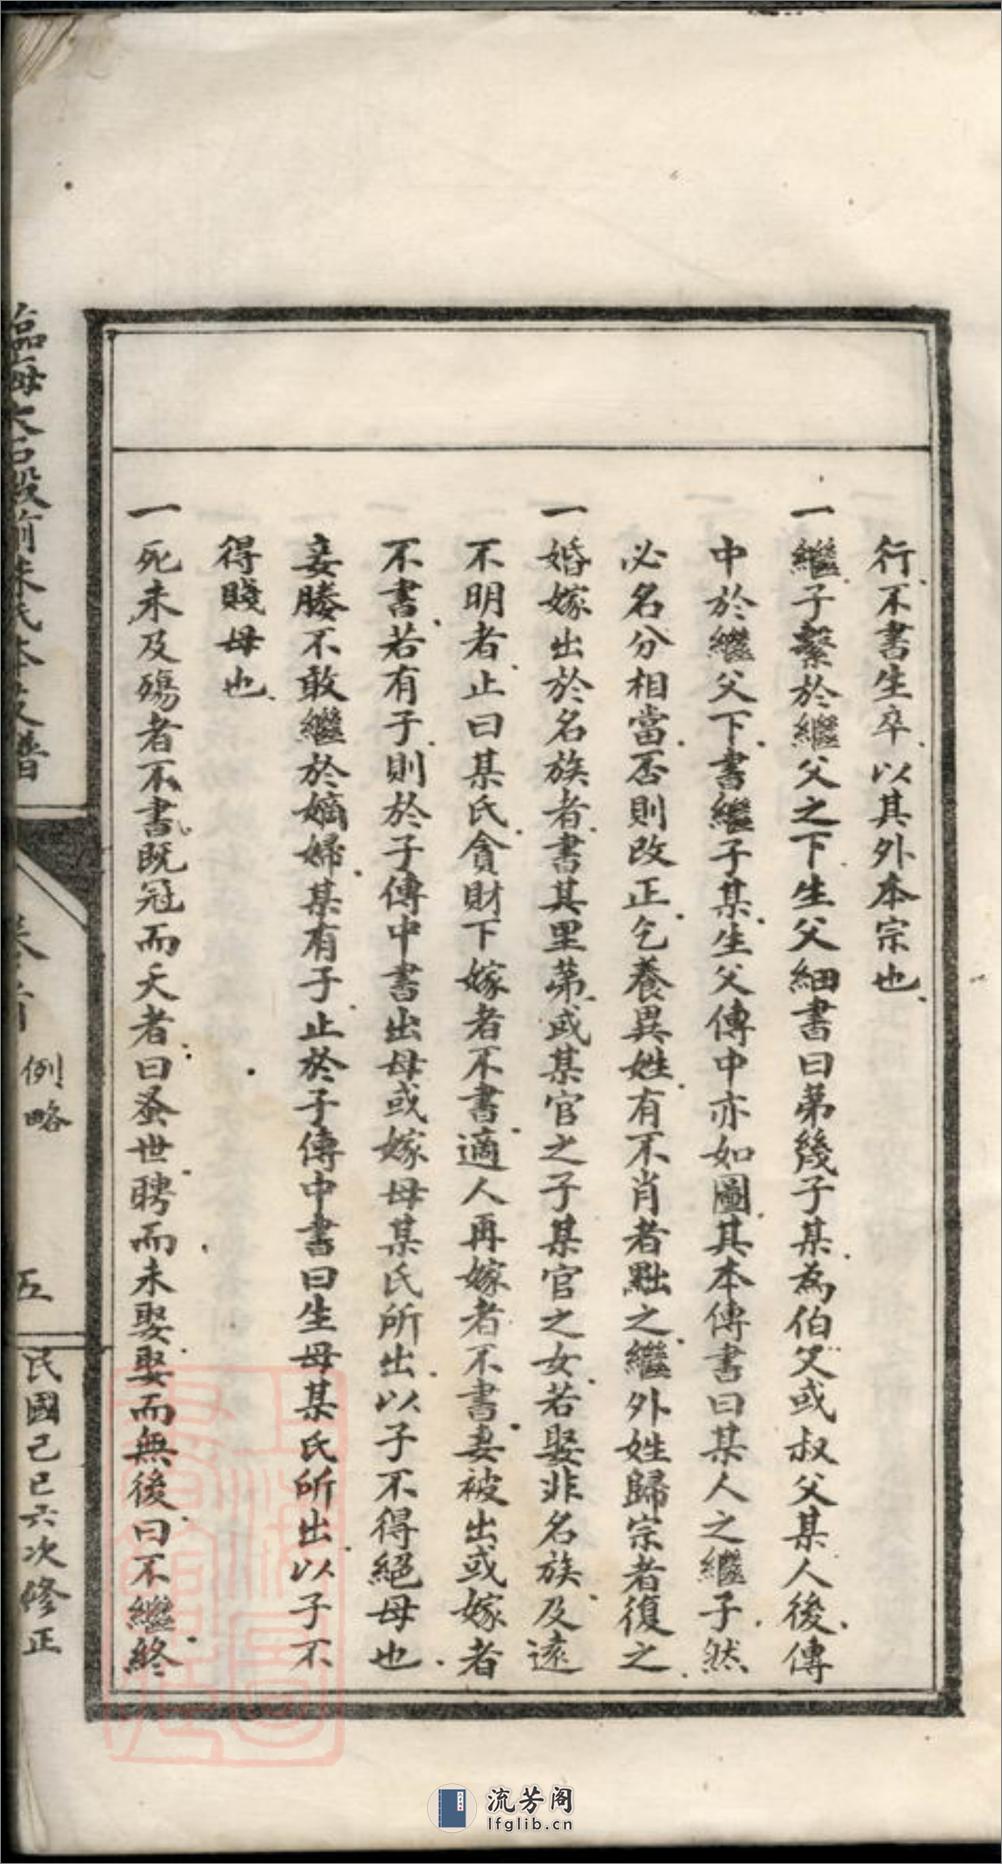 行不書生卒以其外本宗也
一繼子繫於繼父之下生父細書曰苐幾子某為伯父或叔父某人後傳
中於繼父下書繼子某生父傳中亦如圖其本傳書曰某人之繼子然
必名分相當否則改正乞養異姓有不肖者黜之繼外姓歸宗者復之
一婚嫁出於名族者書其里苐或某官之子某官之女若娶非名族及遠
不明者止曰某氏貪財下嫁者不書適人再嫁者不書妻被出或嫁者
不書若有子則於子傳中書出母或嫁母某氏所出以子不得絕母也
妾媵不敢繼於嫡婦某有子止於子傳中書曰生母某氏所出以子不
得賤母也
一死未及殤者不書既冠而夭者曰蚤世聘而未娶娶而無後曰不繼終
臨海大石殿前朱氏本支譜
卷首
例略
五
民國己巳六次修正
流芳阁
lfglib.cn